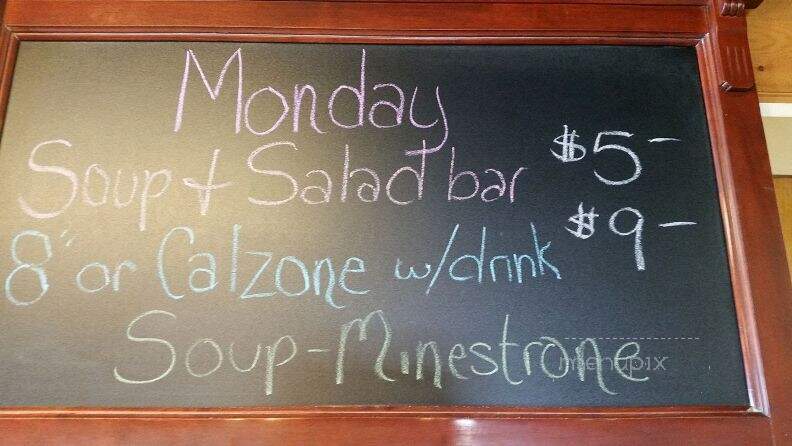 Monday
Soup & Salad bar $5-
8" or Calzone w/drink $9-
Soup-Minestrone
menupix